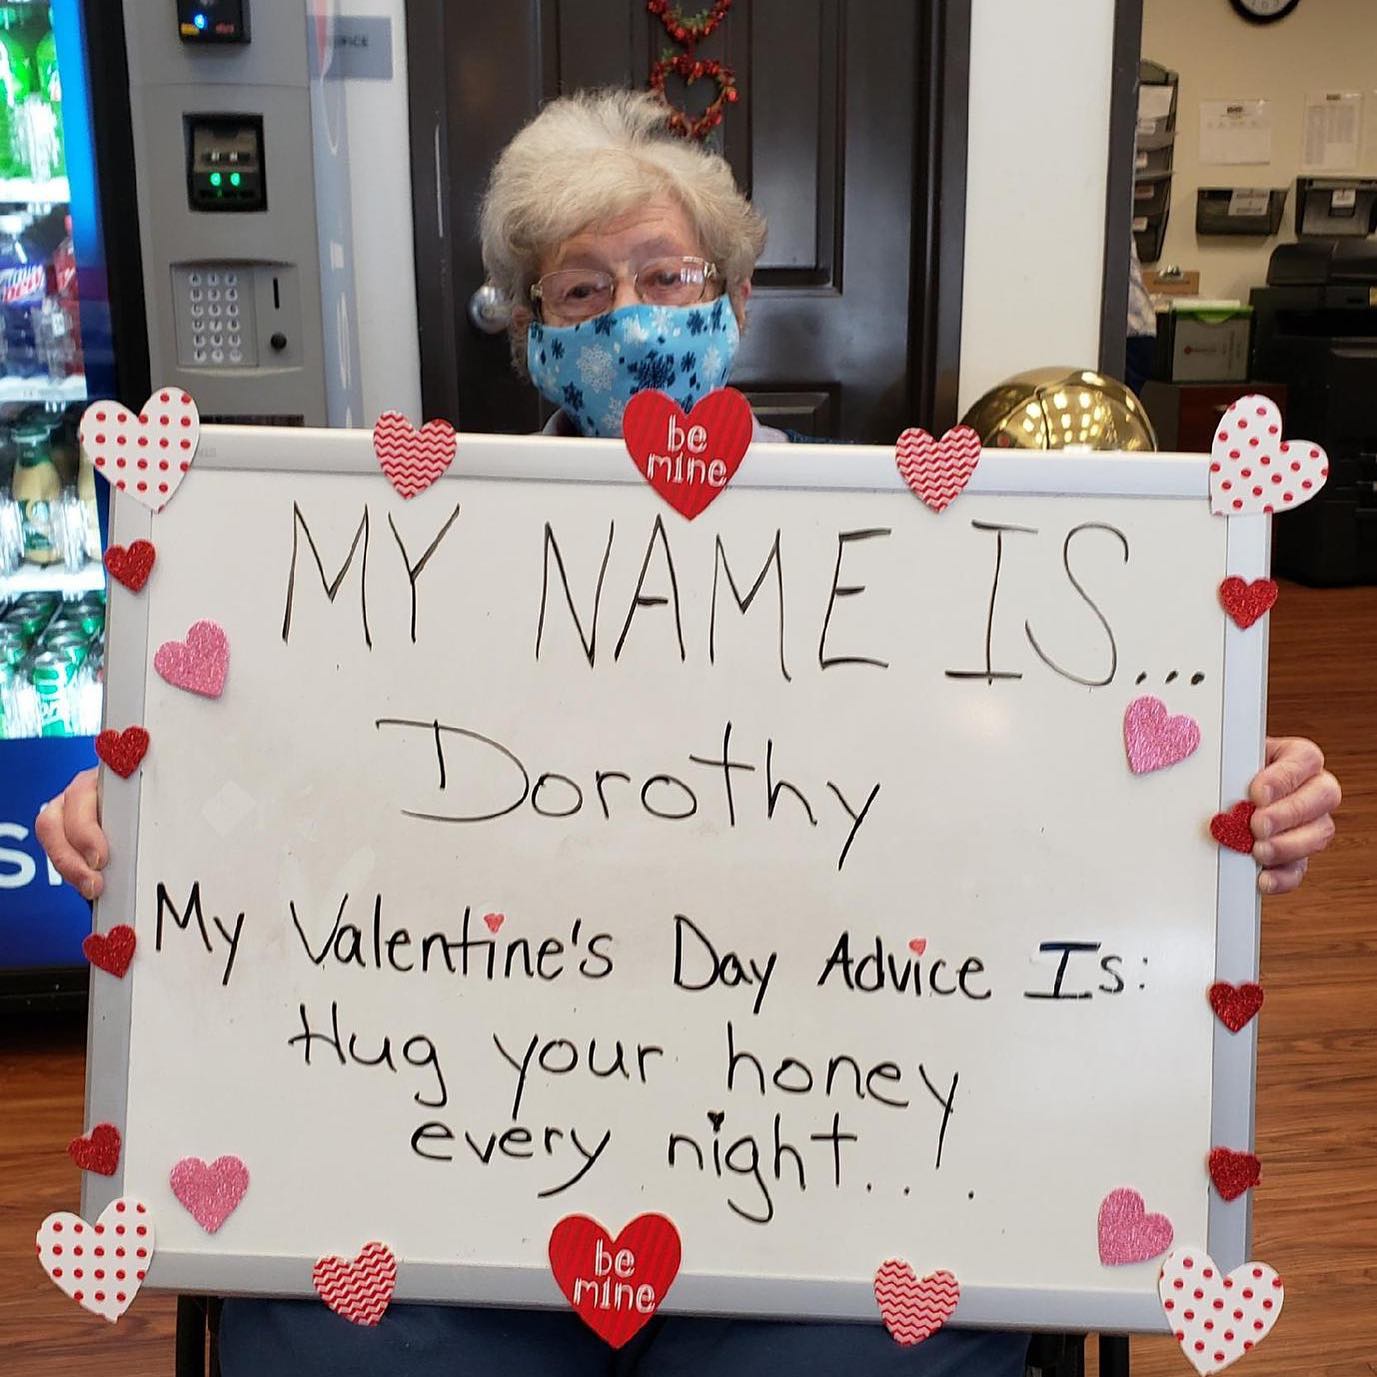 be
mine
MY NAME IS...
Dorothy
My Valentine's Day Advice Is:
Hug your honey
every night..!
be
mine